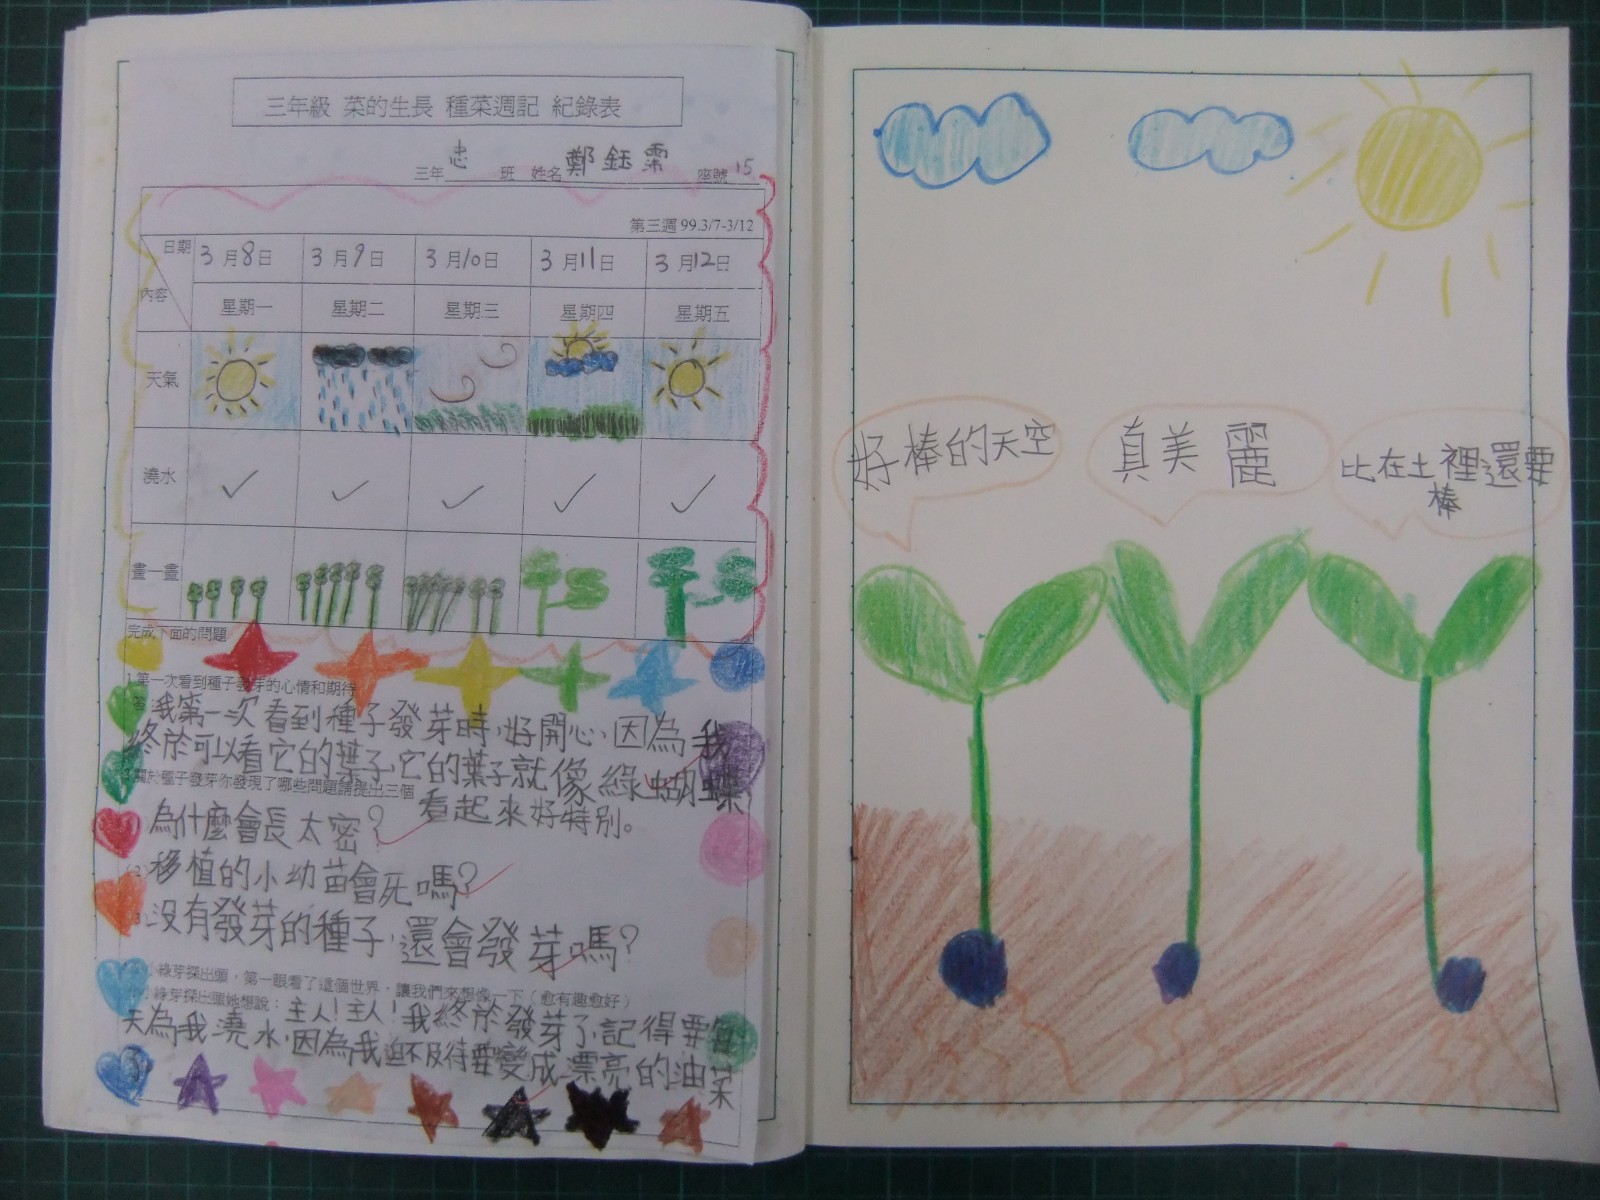 三年級 菜的生長 種菜週記 紀錄表
三年 忠 班 姓名 鄭鈺霈 座號 15
第三週 99.3/7-3/12
日期 3月8日 3月9日 3月10日 3月11日 3月12日
內容 星期一 星期二 星期三 星期四 星期五
天氣
澆水 ✓ ✓ ✓ ✓ ✓
畫一畫
完成下面的問題
1.第一次看到種子發芽的心情和期待
答我第一次看到種子發芽時,好開心,因為我
終於可以看它的葉子,它的葉子就像綠蝴蝶
看起來好特別。
關於種子發芽你發現了哪些問題請提出三個
為什麼會長太密?
(2)移植的小幼苗會死嗎?
沒有發芽的種子,還會發芽嗎?
小綠芽探出頭,第一眼看了這個世界,讓我們來想像一下(愈有趣愈好)
小綠芽探出頭她想說:主人!主人!我終於發芽了,記得要每
天為我澆水,因為我迫不及待要變成漂亮的油菜
好棒的天空
真美麗
比在土裡還要
棒